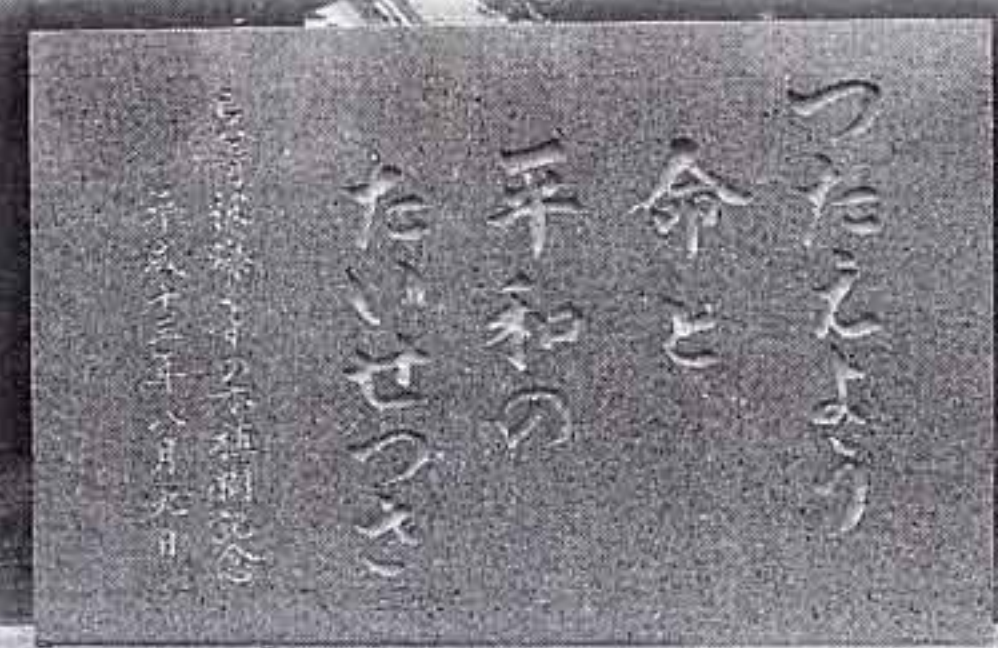 つたえよう
命と
平和の
たいせつさ
の木植樹
平成十三年八月九日